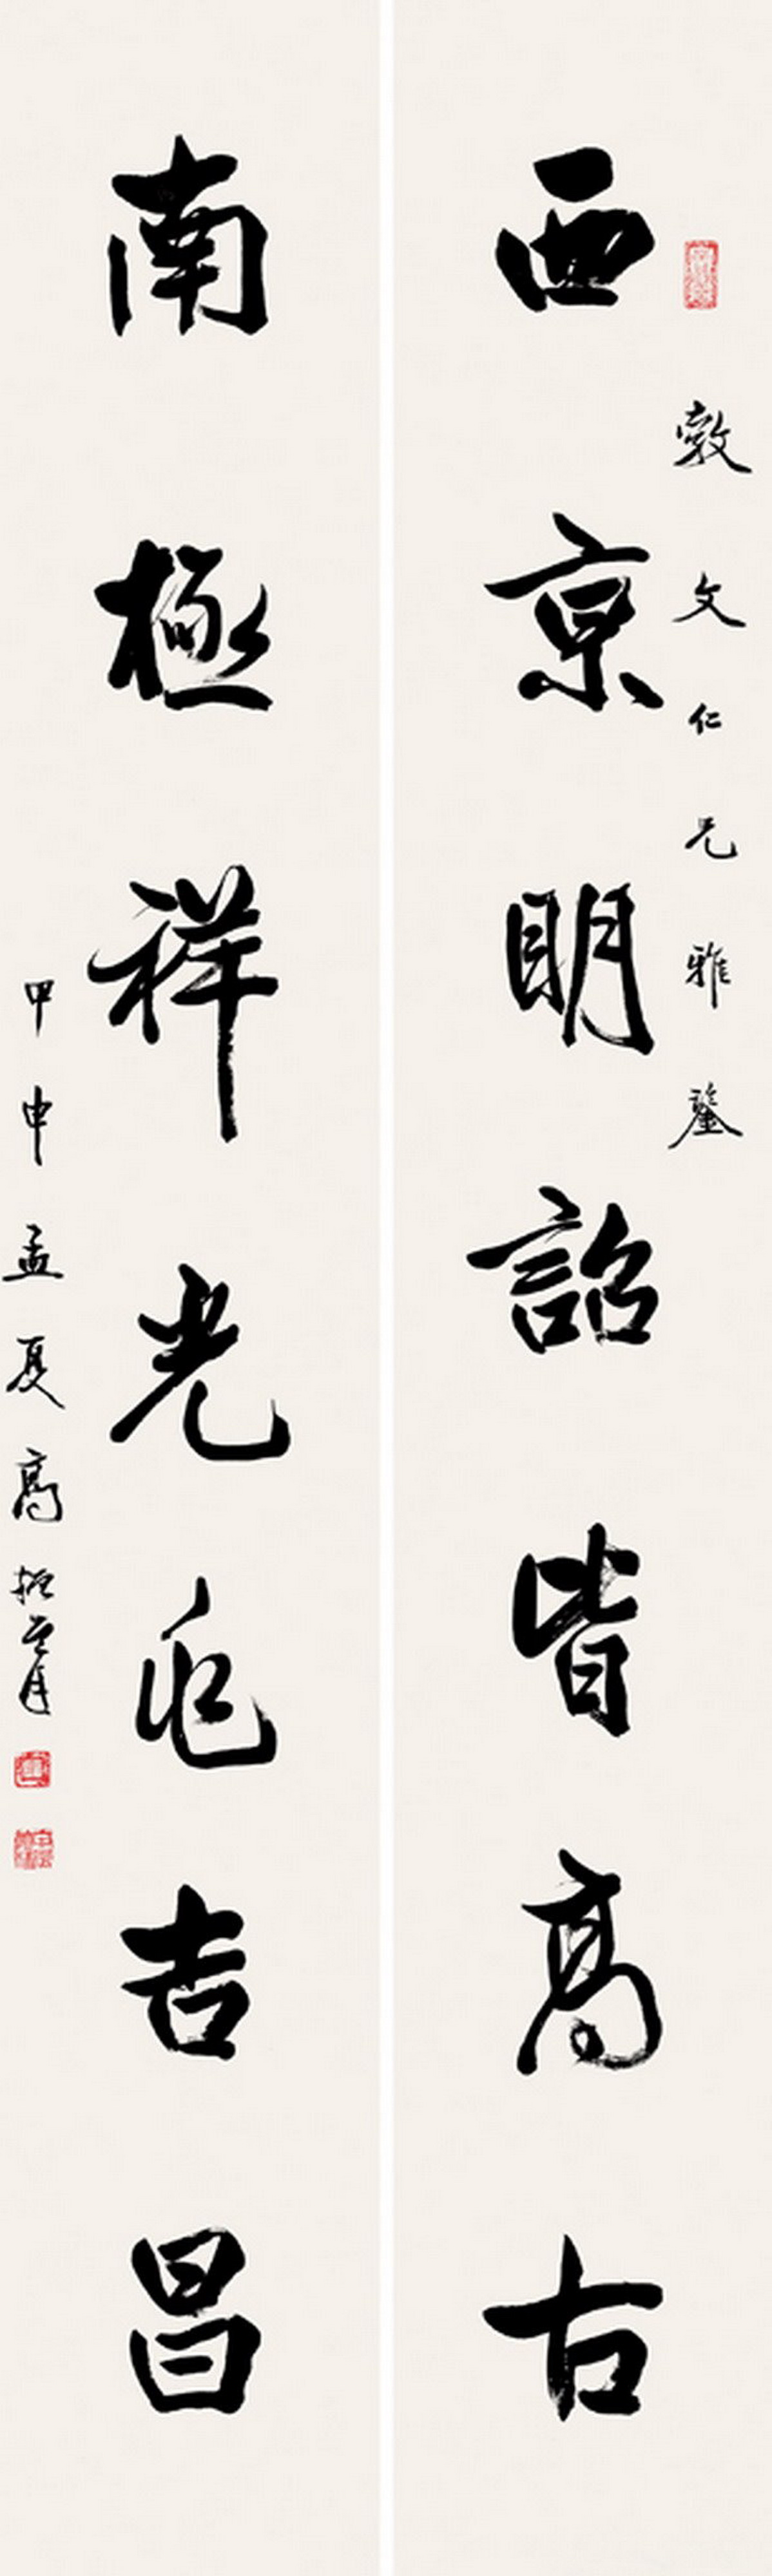 敦文仁兄雅鑒
西京明詔皆高古
南極祥光兆吉昌
甲申孟夏高振霄